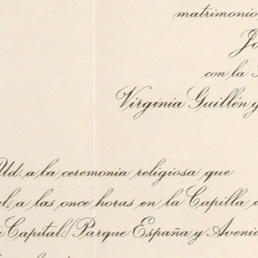 matrimonio,
con la
Virginia Guillén y
Ud. a la ceremonia religiosa que
a las once horas en la Capilla
Capital. (Parque España y Aveni